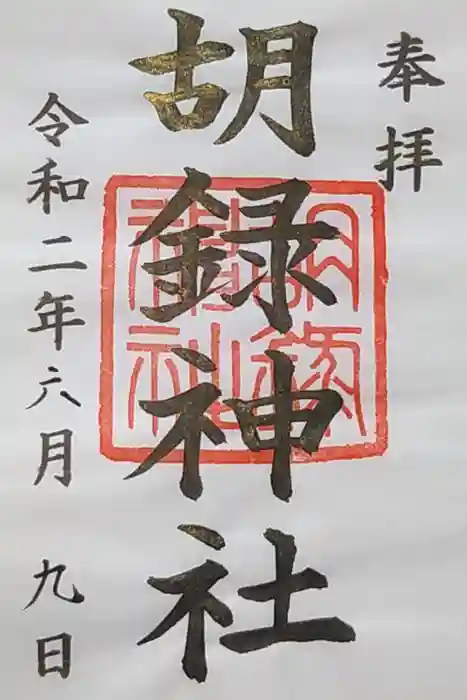 奉拝
胡録神社
令和二年六月九日